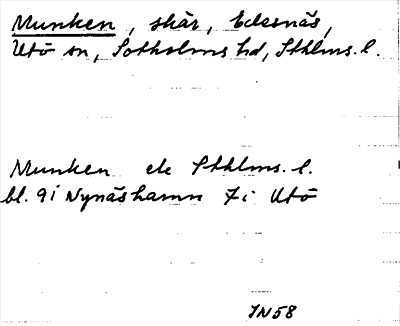 Munken, skär, Edesnäs,
Utö sn, Sotholms hd, Sthlms. l.
Munken ek Sthlms. l.
bl. 9i Nynäshamn 7i Utö
IN58